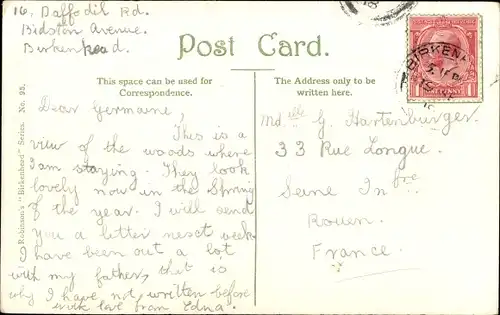 16, Daffodil Rd.
Bidston Avenue.
Birkenhead.
Post Card.
This space can be used for
Correspondence.
The Address only to be
written here.
Dear Germaine,
This is a
view of the woods where
I am staying. They look
lovely now in the Spring
of the year. I will send
you a letter next week
I have been out a lot
with my father, that is
why I have not written before
with love from Edna.
Robinson's "Birkenhead" Series. No. 95.
BIRKENH
Mdelle G. Hartenburger.
33 Rue Longue.
Seine Infre
Rouen.
France.